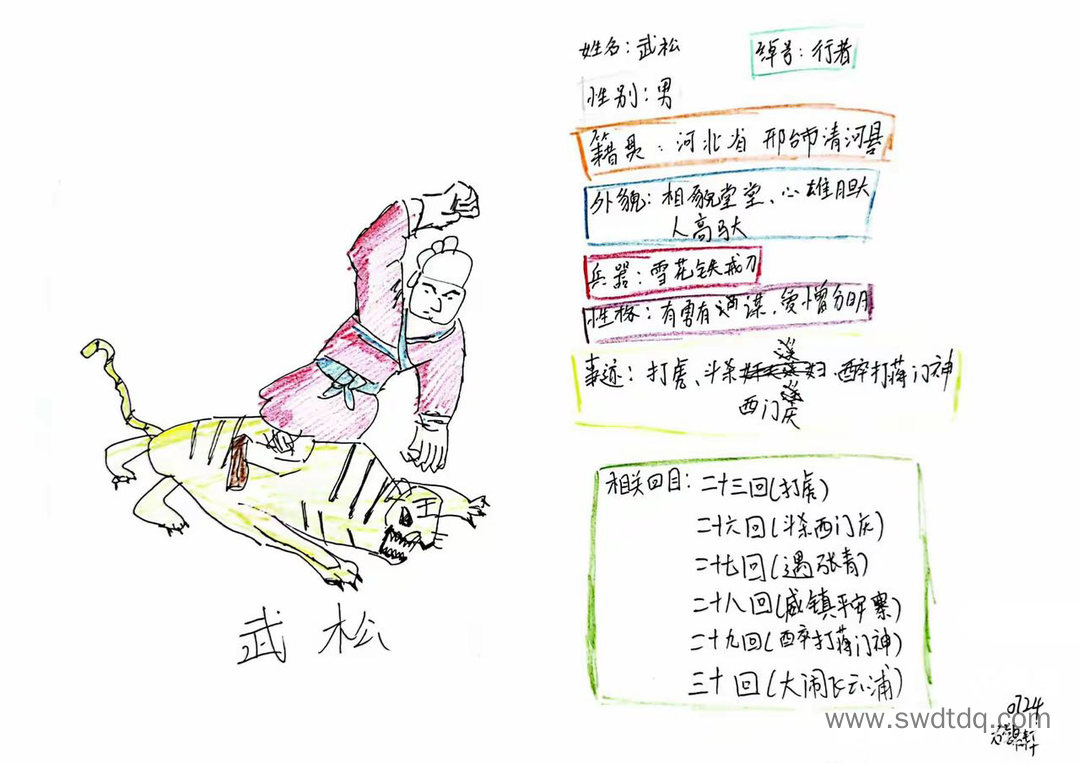 姓名：武松
绰号：行者
性别：男
籍贯：河北省 邢台市清河县
外貌：相貌堂堂、心雄胆大
人高马大
兵器：雪花铁戒刀
性格：有勇有谋、爱憎分明
事迹：打虎、斗杀 醉打蒋门神
西门庆
相关回目：二十三回(打虎)
二十六回(斗杀西门庆)
二十七回(遇张青)
二十八回(威镇平安寨)
二十九回(醉打蒋门神)
三十回(大闹飞云浦)
武松
0724
www.swdtdq.com